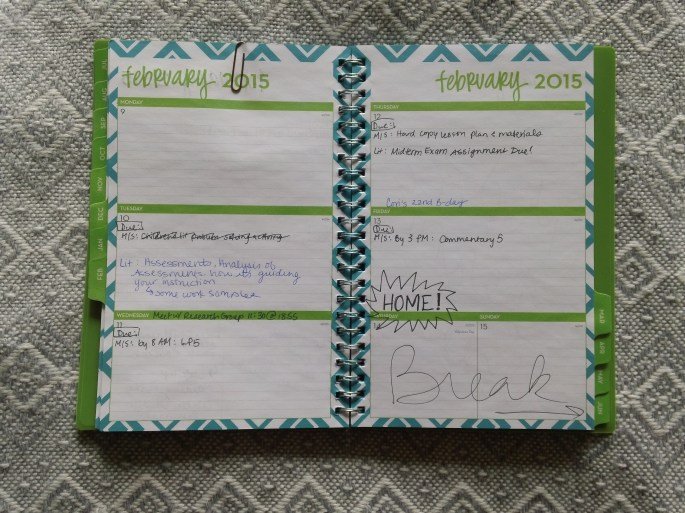 february 2015
MONDAY
9
TUESDAY
10
Due:
M/S:
Lit: Assessments, Analysis of
Assessments, how its guiding
your instruction
some work samples
WEDNESDAY
Meet w/ Research Group 11:30 @
11
Due:
M/S: by 8 AM:
february 2015
THURSDAY
12
Due:
M/S: Hard copy lesson plan & materials
Lit: Midterm Exam Assignment Due!
22nd B-day
FRIDAY
13
Due:
M/S: By 3 PM: Commentary 5
HOME!
SATURDAY
14
SUNDAY
15
Break
SEP
OCT
NOV
DEC
JAN
FEB
MAR
APR
MAY
JUN